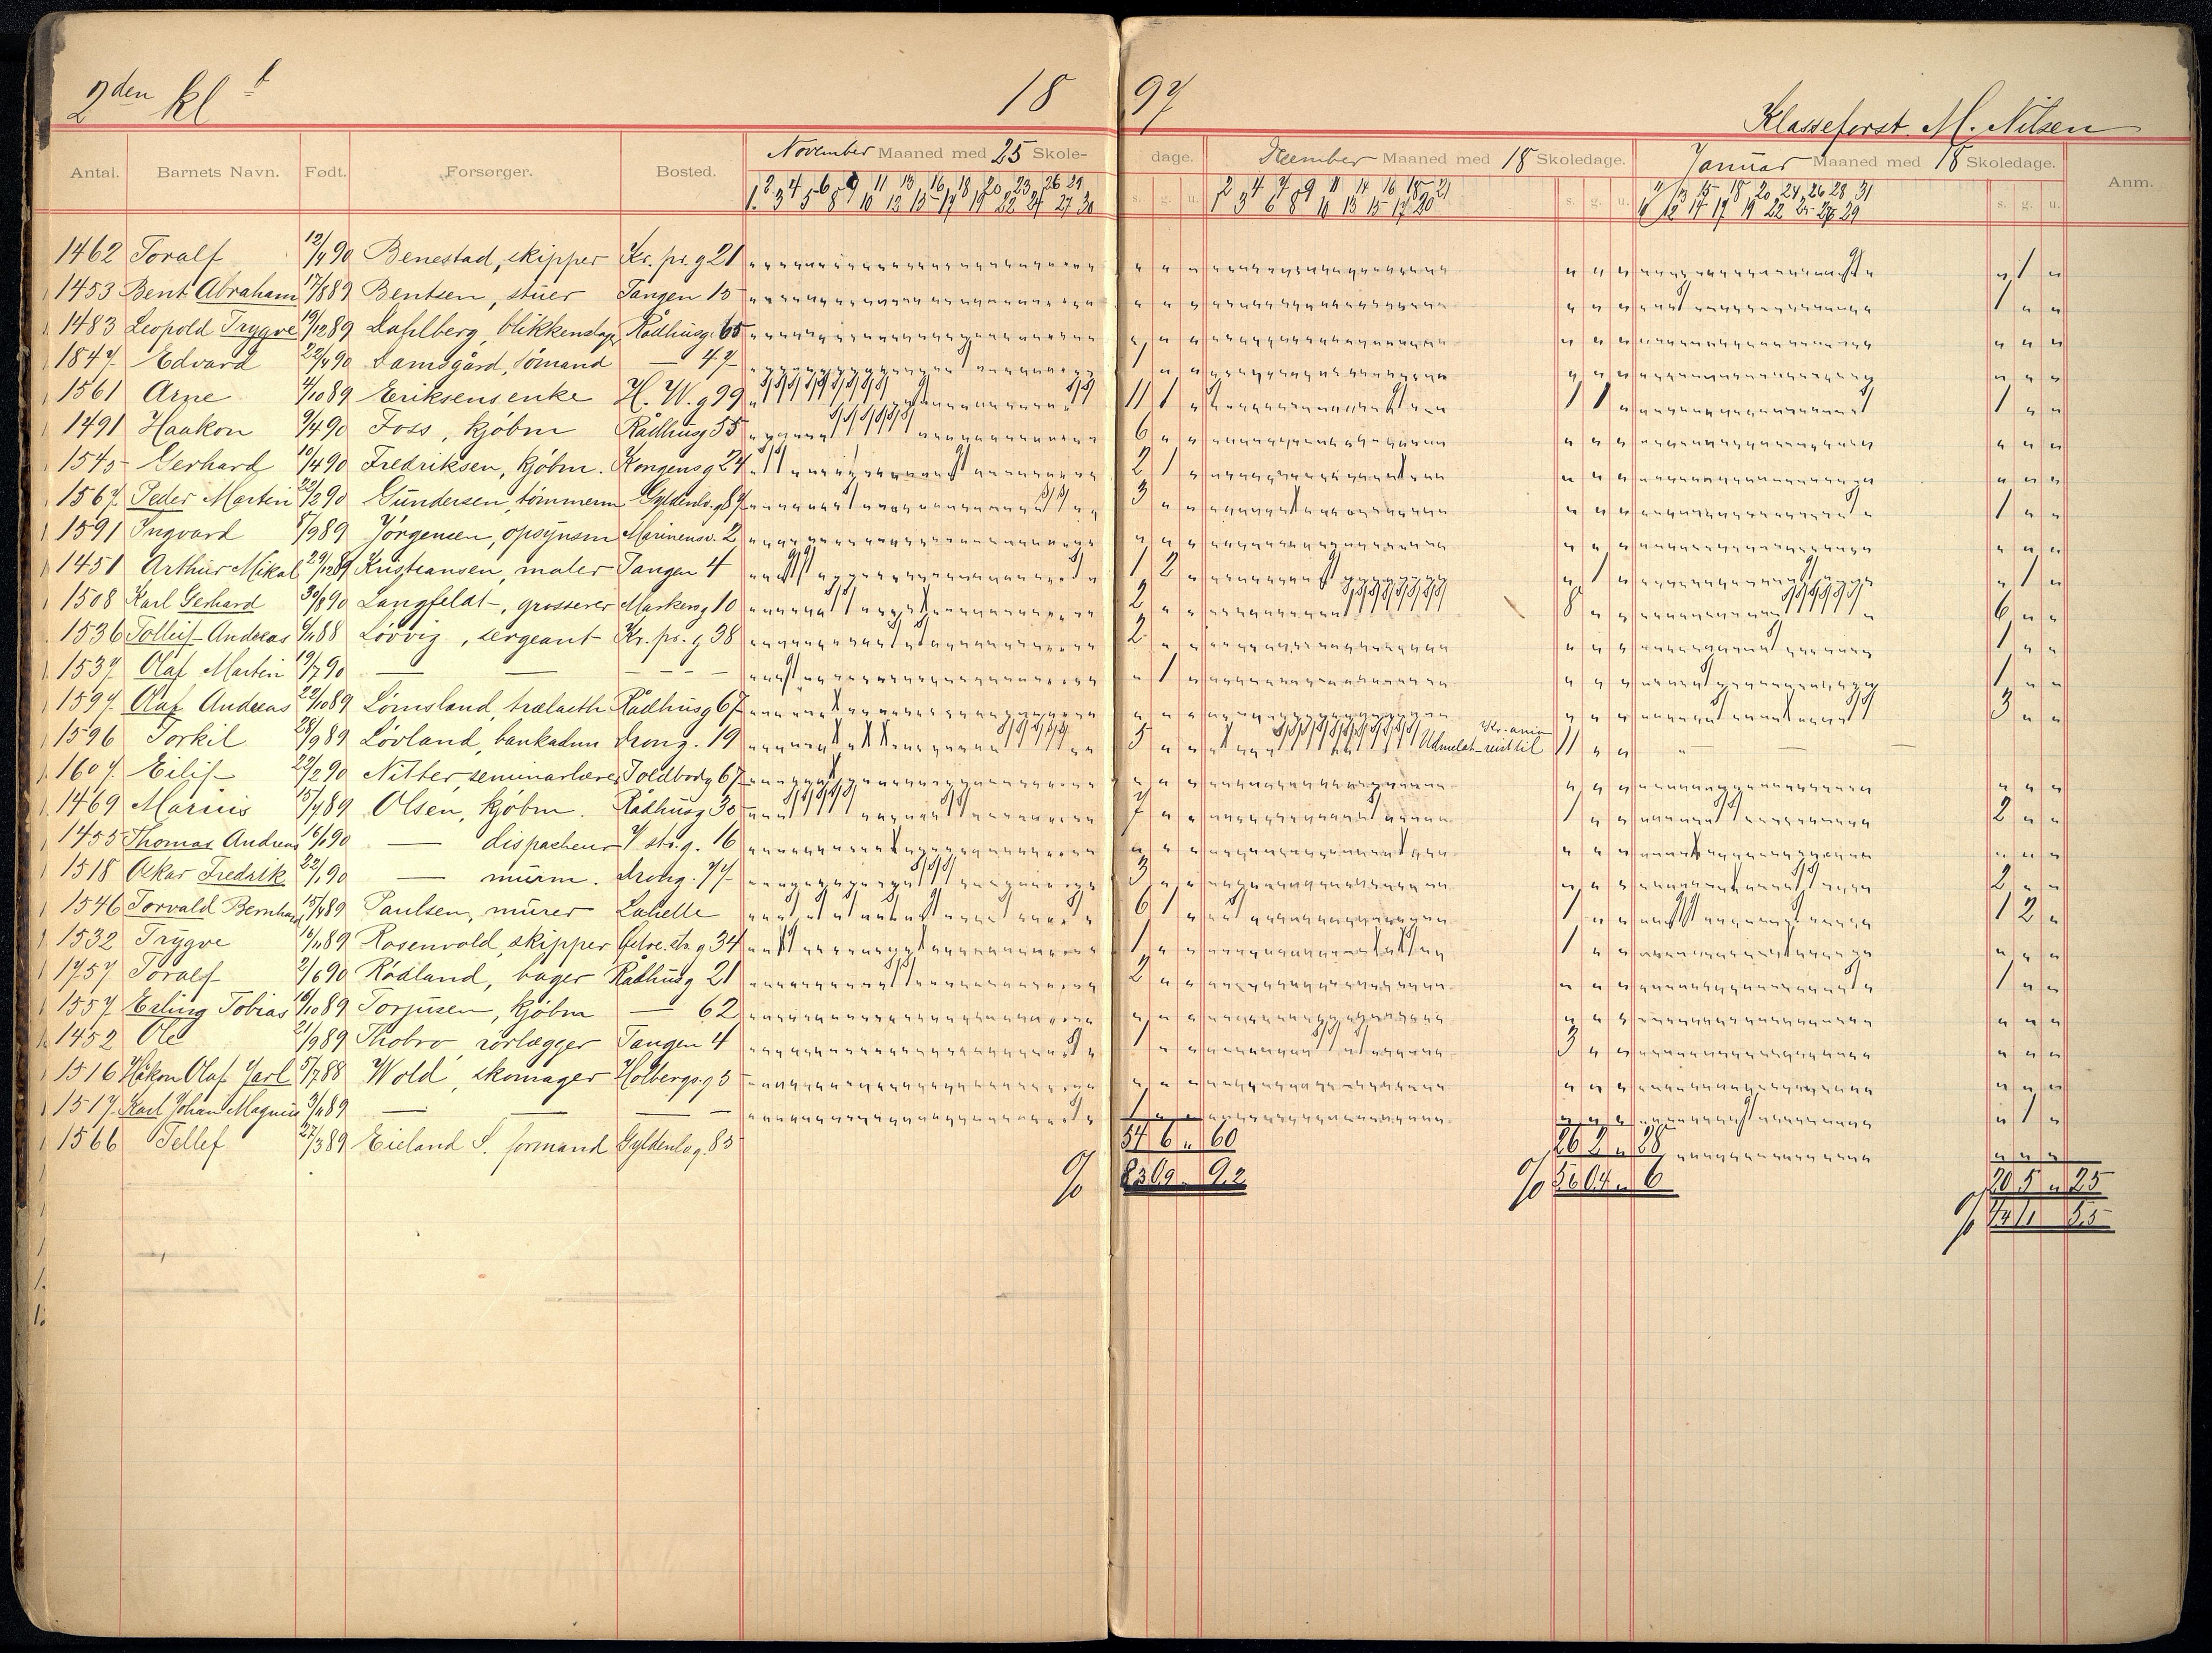 2den kl b 18 97
Klasseforst. M. Nilsen
Antal. Barnets Navn. Født. Forsørger. Bosted. November Maaned med 25 Skole- dage. December Maaned med 18 Skoledage. Januar Maaned med 18 Skoledage. Anm.
s. g. u. s. g. u. s. g. u.
1462 Toralf 12/4 90 Benestad, skipper Kr. pr. g 21
1453 Bent Abraham 17/8 89 Bentsen, stuer Tangen 15
1483 Leopold Trygve 19/12 89 Dahlberg, blikkenslag. Rådhusg. 65
1847 Edvard 22/4 90 Damsgård, sømand — 47
1561 Arne 4/10 89 Eriksens enke H. W. g 99 11 1 " 1 1 " 1 " "
1491 Haakon 9/4 90 Foss, kjøbm Rådhusg 55 6 " "
1545 Gerhard 10/4 90 Fredriksen, kjøbm. Kongensg 24 2 1
1567 Peder Martin 22/2 90 Gundersen, tømmerm Gyldenlv. g 87 3 " " 1 " "
1591 Ingvard 8/9 89 Jørgensen, opsynsm Marinensv. 2
1451 Arthur Mikal 29/12 89 Kristiansen, maler Tangen 4 1 2 " " 1 " " 1 "
1508 Karl Gerhard 30/8 90 Langfeldt, grosserer Markensg 10 2 " " 8 " " 6 " "
1536 Tollef Andreas 6/1 88 Løvvig, sergeant Kr. pr. g 38 2 " " 1 " "
1537 Olaf Martin 19/7 90 — — — — — " 1 " 1 " "
1597 Olaf Andreas 22/10 89 Lømsland, trælasth Rådhusg 67 3 " "
1596 Torkil 28/9 89 Løvland, bankadm Drong. 19 5 " " Udmeldt reist til Kr.ania 11 " " " — — —
1607 Eilif 22/2 90 Nitter, seminarlærer Toldbodg 67
1469 Marius 15/7 89 Olsen, kjøbm. Rådhusg 30 7 " " 1 " " 2 " "
1455 Thomas Andreas 16/1 90 — dispacheur V. str. g. 16
1518 Oskar Fredrik 22/1 90 — murm. Drong. 77 3 " " 2 " "
1546 Torvald Bernhard 15/4 89 Paulsen, murer Lahelle 6 1 " 1 " " 1 2 "
1532 Trygve 16/11 89 Rosenvold, skipper Østre. str. g 34 1 " " 1 " "
1757 Toralf 2/6 90 Rødland, bager Rådhusg 21 2 " " 1 " "
1557 Erling Tobias 16/10 89 Torjusen, kjøbm — 62
1452 Ole 21/9 89 Thobro, rørlægger Tangen 4 1 " " 3 " "
1516 Håkon Olaf Jarl 5/7 88 Wold, skomager Holbergsg 5
1517 Karl Johan Magnus 3/4 89 — — — — 1 " " " 1 "
1566 Tellef 27/3 89 Eieland S. formand Gyldenlv g. 85
54 6 " 60 26 2 " 28
% 8.3 0.9 9.2 % 5.6 0.4 " 6 20 5 " 25
% 4.4 1.1 5.5